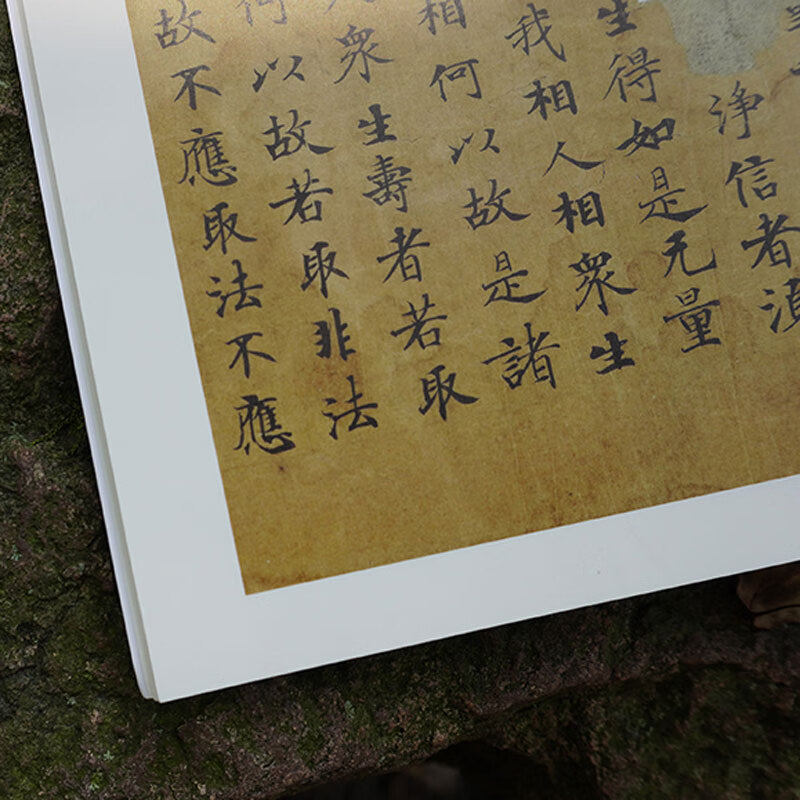 淨信者湏
生得如是无量
我相人相衆生
相何以故是諸
人衆生壽者若取
何以故若取非法
故不應取法不應